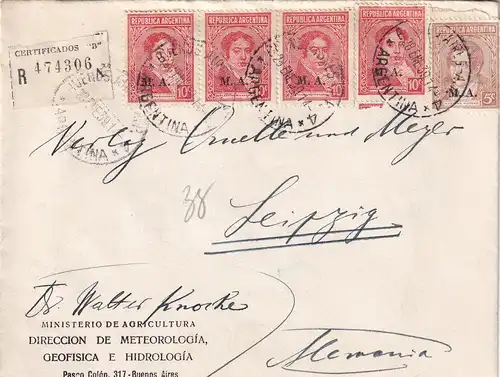 REPUBLICA ARGENTINA REPUBLICA ARGENTINA REPUBLICA ARGENTINA REPUBLICA ARGENTINA REPUBLICA ARGENTINA
CERTIFICADOS "B"
R 474306
M.A. M.A. M.A. M.A. M.A.
10c 10c 10c 10c 5c
ARGENTINA ARGENTINA ARGENTINA
Verlag Quelle und Meyer
38
Leipzig
Dr. Walter Knoche
MINISTERIO DE AGRICULTURA
DIRECCION DE METEOROLOGÍA,
GEOFISICA E HIDROLOGÍA
Paseo Colón, 317 - Buenos Aires
Alemania